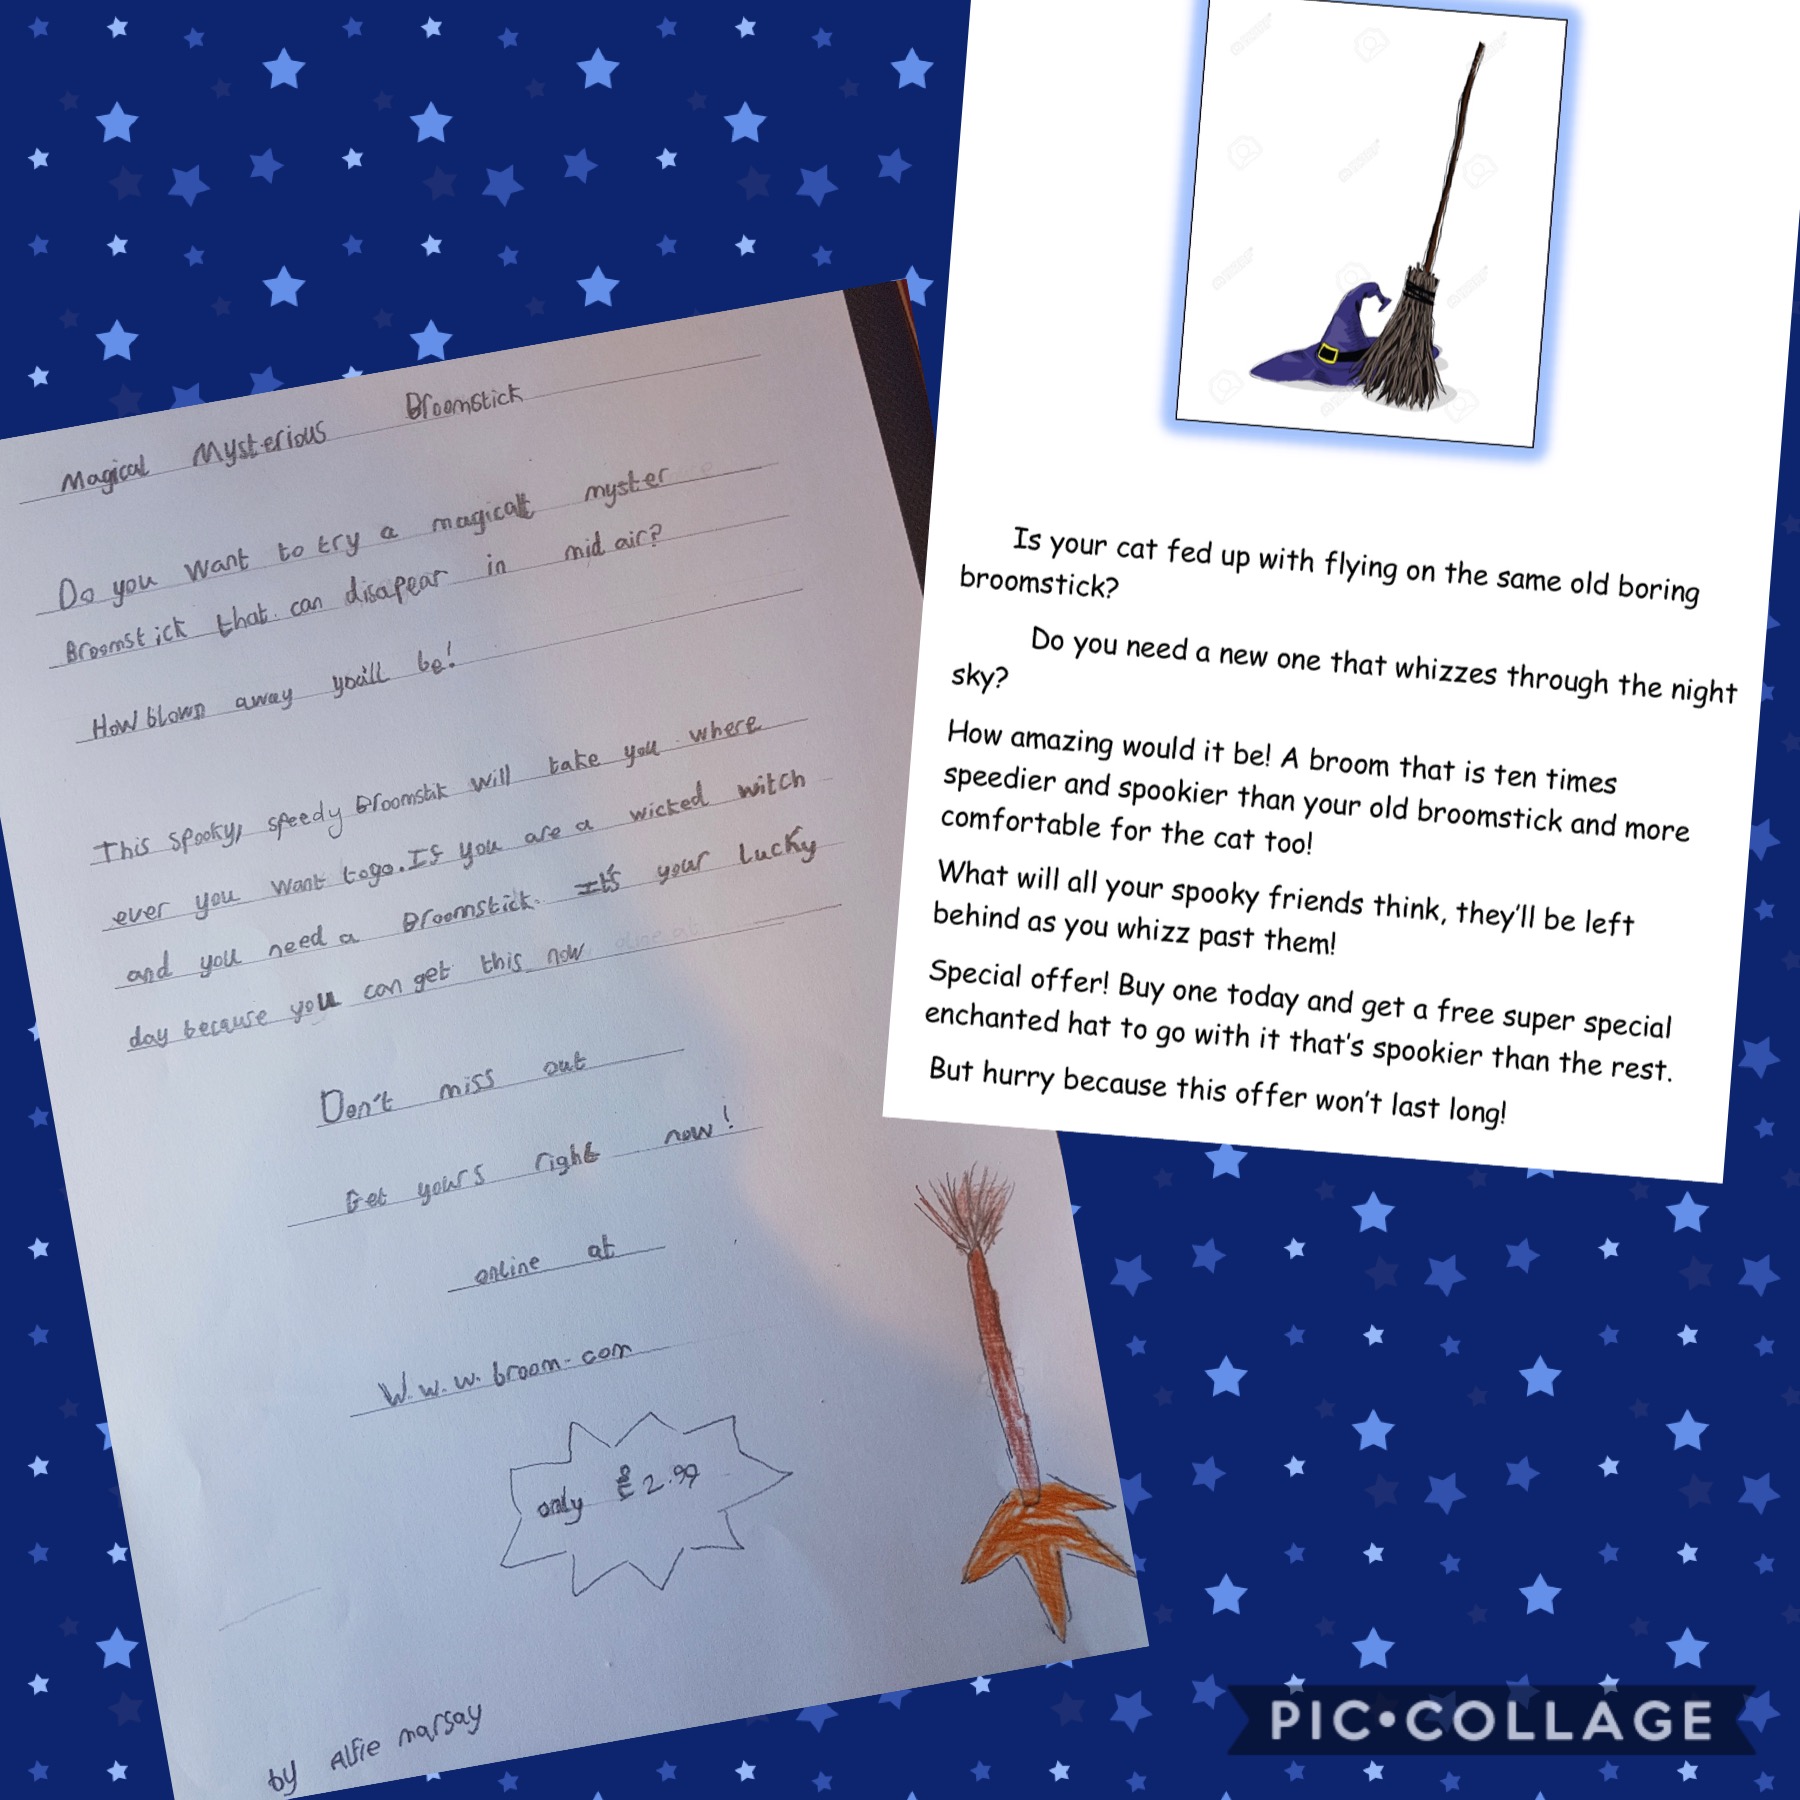 Magical Mysterious Broomstick
Do you want to try a magical myster
Broomstick that can disapear in mid air?
How blown away you'll be!
This spooky, speedy Broomstik will take you where
ever you want togo. If you are a wicked witch
and you need a Broomstick. It's your lucky
day because you can get this now
Don't miss out
Get yours right now!
online at
W.w.w.broom-com
only £2.99
by Alfie marsay
Is your cat fed up with flying on the same old boring
broomstick?
Do you need a new one that whizzes through the night
sky?
How amazing would it be! A broom that is ten times
speedier and spookier than your old broomstick and more
comfortable for the cat too!
What will all your spooky friends think, they'll be left
behind as you whizz past them!
Special offer! Buy one today and get a free super special
enchanted hat to go with it that's spookier than the rest.
But hurry because this offer won't last long!
PIC•COLLAGE